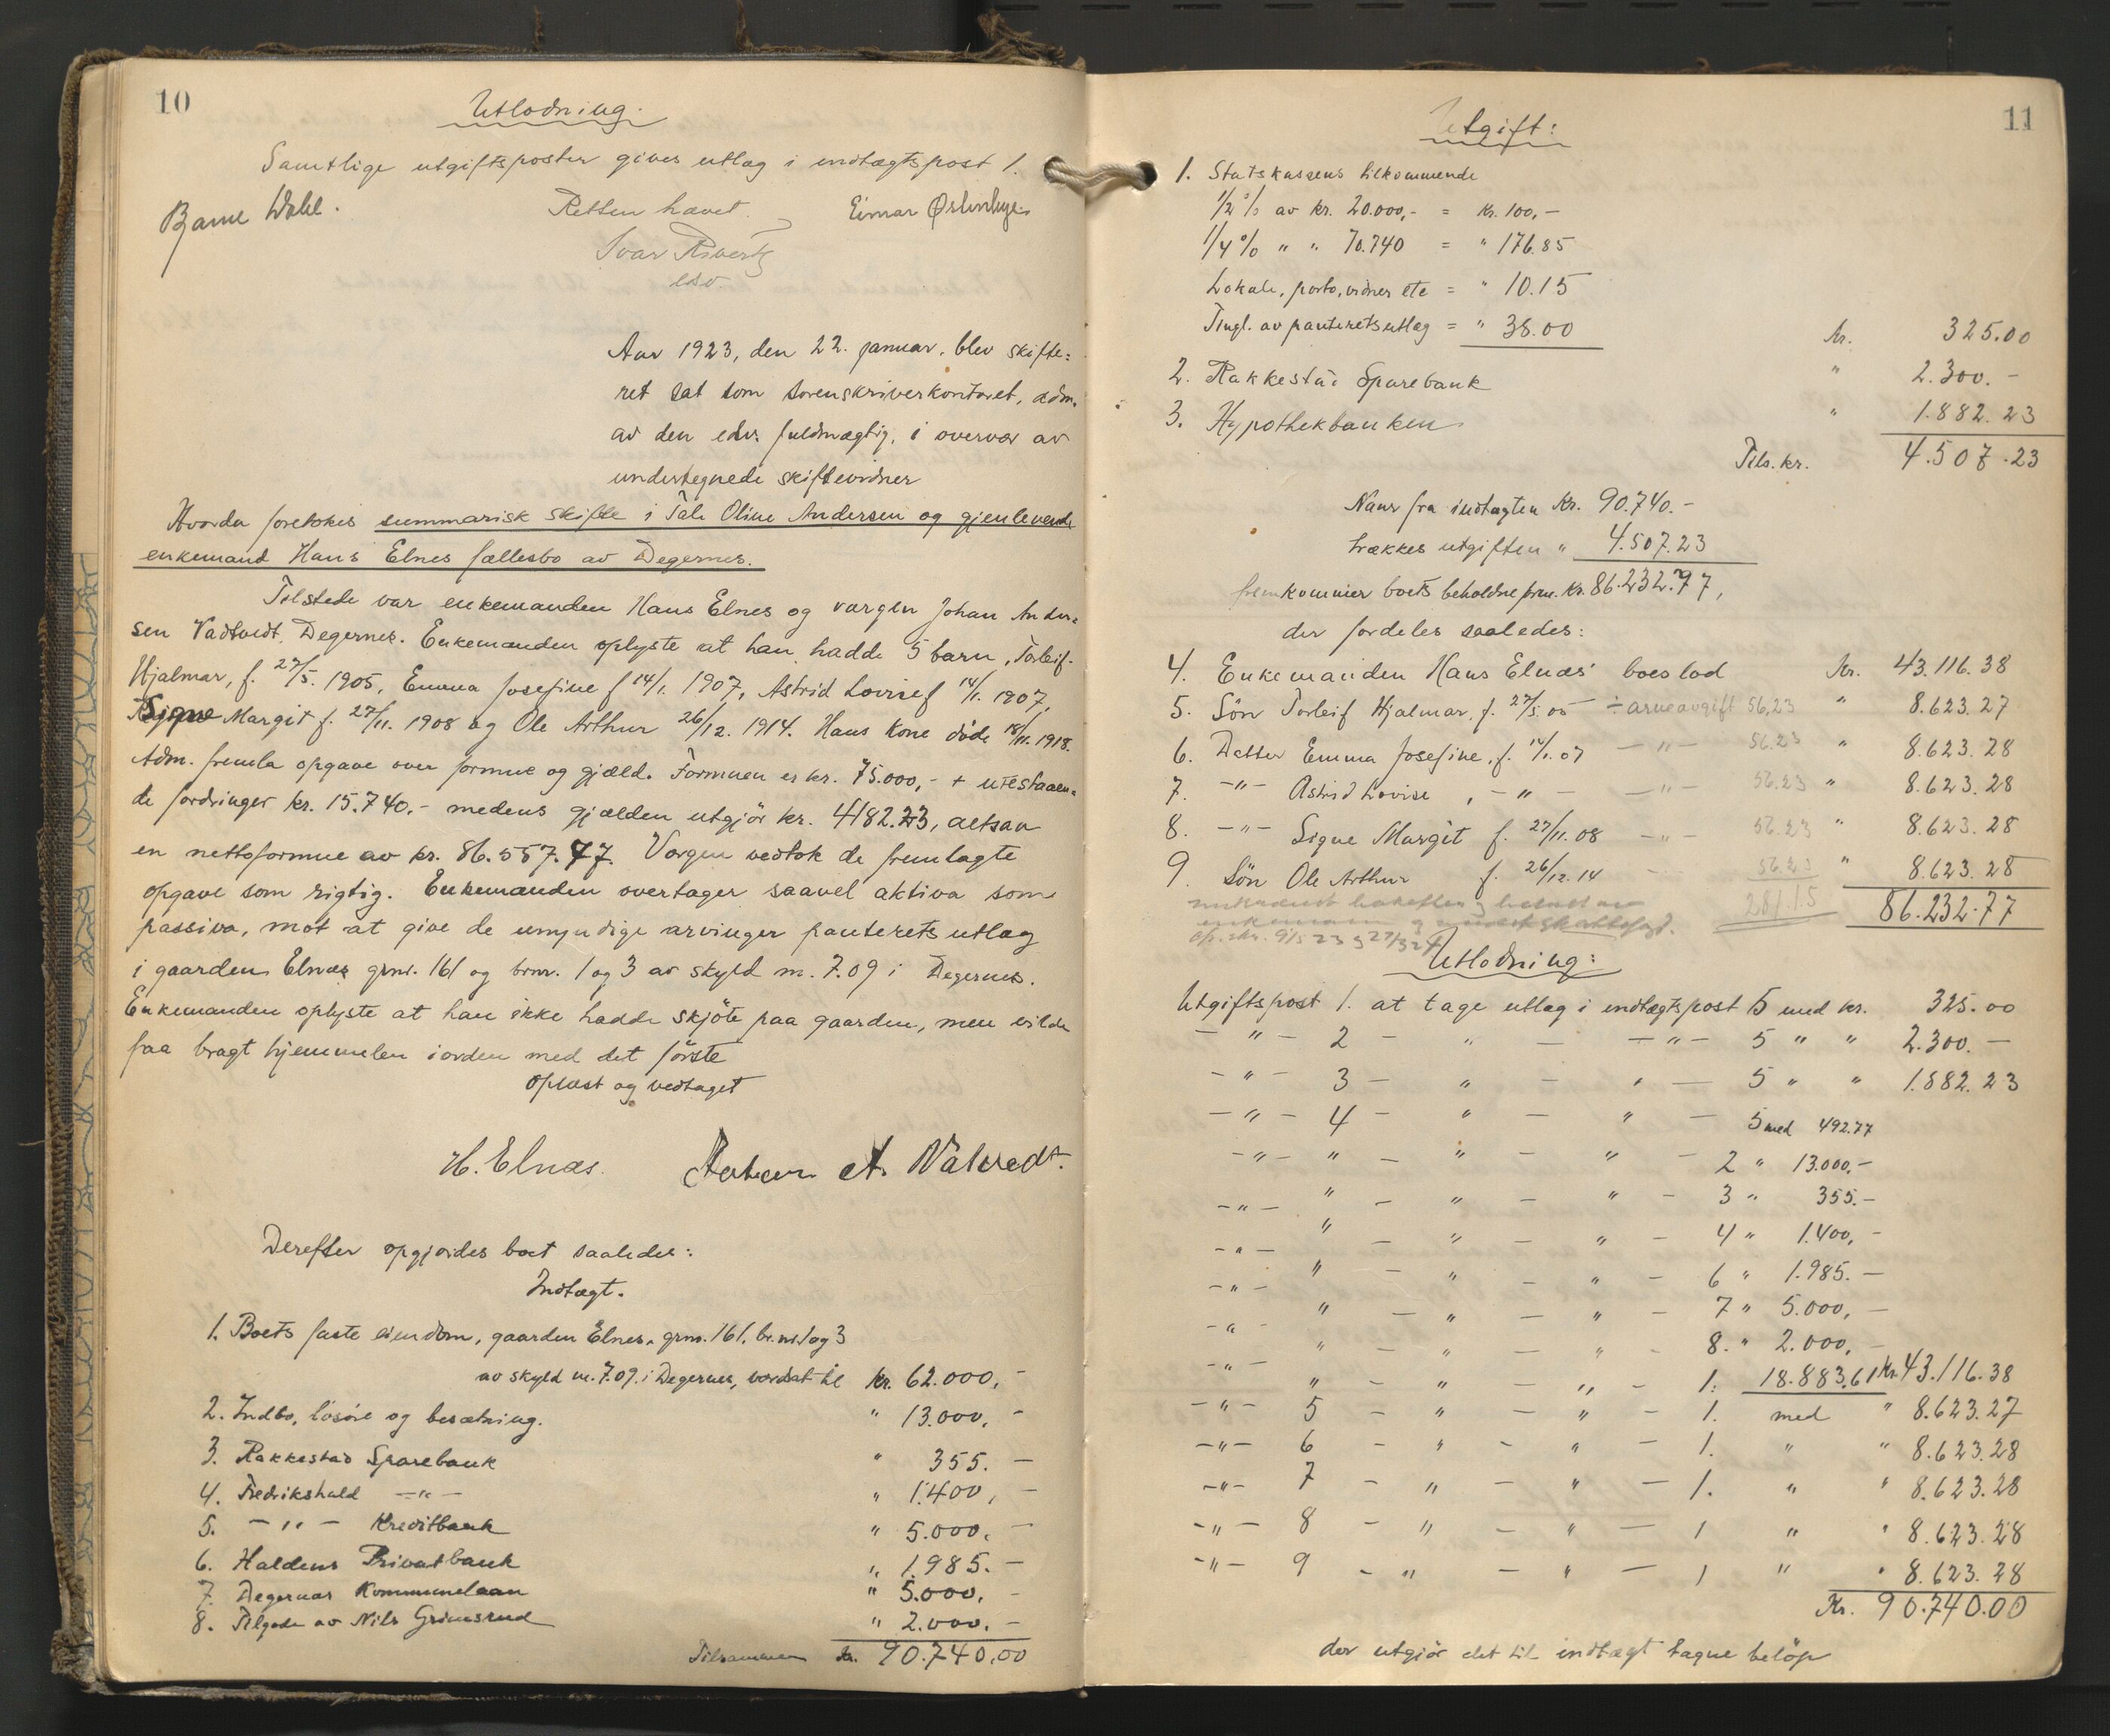 10
Utlodning.
Samtlige utgiftsposter gives utlæg i indtægtspost 1.
Retten hævet.
Ivar
edsv.
Aar 1923, den 22. januar, blev skifte=
ret sat som sorenskriverkontoret, adm.
av den edsv. fuldmægtig, i overvær av
undertegnede skiftevidner
Hvorda foretokes summarisk skifte i Tale Oline Andersen og gjenlevende
enkemand Hans Elnes fællesbo av Degernes.
Tilstede var enkemanden Hans Elnes og værgen Johan Ander=
sen Degernes. Enkemanden oplyste at han hadde 5 barn, Torleif
Hjalmar, f. 27/5. 1905, Emma Josefine f 14/1. 1907, Astrid Lovise f 14/1. 1907,
Signe Margit f. 27/11. 1908 og Ole Arthur 26/12. 1914. Hans kone døde 18/11. 1918.
Adm. fremla opgave over formue og gjæld. Formuen er kr. 75.000,- + utestaaen=
de fordringer kr. 15.740.- medens gjælden utgjør kr. 4182.23, altsaa
en nettoformue av kr. 86.557.77. Værgen vedtok de fremlagte
opgave som rigtig. Enkemanden overtager saavel aktiva som
passiva, mot at give de umyndige arvinger panteretsutlæg
i gaarden Elnæs grnr. 161 og brnr. 1 og 3 av skyld m. 7.09 i Degernes.
Enkemanden oplyste at han ikke hadde skjøte paa gaarden, men vilde
faa bragt hjemmelen iorden med det første
oplæst og vedtaget
H. Elnæs. Johan A.
Derefter opgjordes boet saaledes:
Indtægt.
1. Boets faste eiendom, gaarden Elnes, grnr. 161, br.nr. 1 og 3
av skyld m. 7.09. i Degernes, værdsat til kr. 62.000,-
2. Indbo, løsøre og besætning. " 13.000,-
3. Rakkestad Sparebank " 355.-
4. Fredrikshald -"- " 1.400,-
5. -"- Kreditbank " 5.000.-
6. Haldens Privatbank " 1.985.-
7. Degernæs Kommunelaan " 5.000,-
8. Tilgode av Nils Grimsrud " 2.000.-
Tilsammen kr. 90.740.00
11
Utgift:
1. Statskassens tilkommende
1/2 % av kr. 20.000,- = kr. 100,-
1/4 % " " 70.740 = " 176.85
Lokale, porto, vidner etc = " 10.15
Tingl. av panteretsutlæg = " 38.00 kr. 325.00
2. Rakkestad Sparebank " 2.300.-
3. Hypothekbanken " 1.882.23
Tils. kr. 4.507.23
Naar fra indtægten kr. 90.740.-
trækkes utgiften " 4.507.23
fremkommer boets beholdne form. kr. 86.232.77,
der fordeles saaledes:
4. Enkemanden Hans Elnæs' boeslod kr. 43.116.38
5. Søn Torleif Hjalmar, f. 27/5.05 ÷ arveavgift 56,23 " 8.623.27
6. Datter Emma Josefine, f. 14/1.07 -"- 56.23 " 8.623.28
7. -"- Astrid Lovise, -"- -"- 56.23 " 8.623.28
8. -"- Signe Margit f. 27/11.08 -"- 56.23 " 8.623.28
9. Søn Ole Arthur f. 26/12.14 - 56.23 " 8.623.28
281.15 86.232.77
Utlodning:
Utgiftspost 1. at tage utlæg i indtægtspost 5 med kr. 325.00
-"- 2 - " - -"- 5 " " 2.300.-
-"- 3 - " - " - 5 " " 1.882.23
-"- 4 - " - " - 5 med 492.77
-"- " - " - " - 2 " 13.000.-
-"- " - " - " - 3 " 355.-
-"- " - " - " - 4 " 1.400,-
-"- " - " - " - 6 " 1.985.-
-"- " - " - " - 7 " 5.000,-
-"- " - " - " - 8. " 2.000,-
-"- " - " - " - 1. 18.883.61 kr. 43.116.38
-"- 5 - " - " - 1. med " 8.623.27
-"- 6 - " - " - 1. " " 8.623.28
-"- 7 - " - " - 1. " " 8.623.28
-"- 8 - " - " - 1 " " 8.623.28
-"- 9 - " - " - 1 " " 8.623.28
Kr. 90.740.00
der utgjør det til indtægt tagne beløp